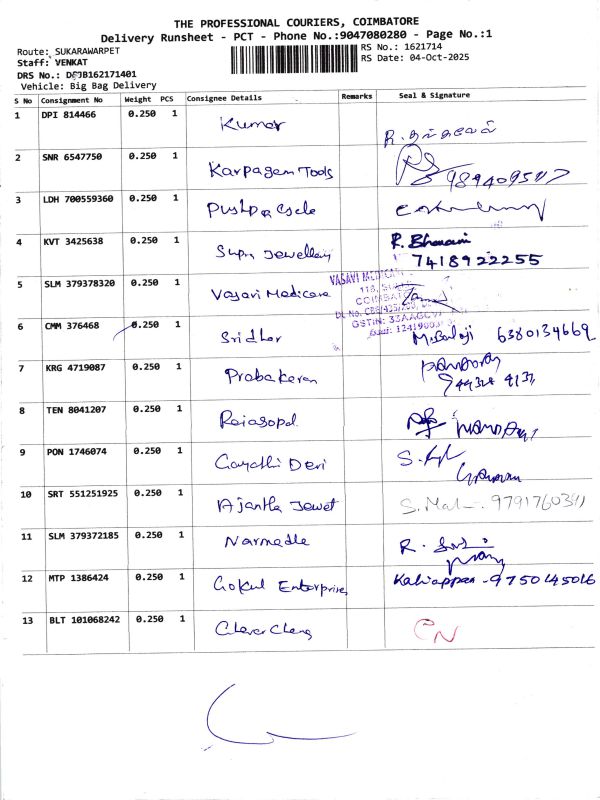 THE PROFESSIONAL COURIERS, COIMBATORE
Delivery Runsheet - PCT - Phone No.:9047080280 - Page No.:1
Route: SUKARAWARPET
RS No.: 1621714
Staff: VENKAT
RS Date: 04-Oct-2025
DRS No.: 162171401
Vehicle: Big Bag Delivery
S No Consignment No Weight PCS Consignee Details Remarks Seal & Signature
1 DPI 814466 0.250 1 Kumar R.
2 SNR 6547750 0.250 1 Karpagam Tools
3 LDH 700559360 0.250 1 Pushpa Cycle
4 KVT 3425638 0.250 1 Supri Jewellery R. Bhavani
7418922255
5 SLM 379378320 0.250 1 Vasavi Medicare VASAVI MEDICAR
COIMBAT
GSTIN: 33AAGC
6 CMM 376468 0.250 1 Sridhar M. Balaji 6380134669
7 KRG 4719087 0.250 1 Prabakaran
8 TEN 8041207 0.250 1 Rajagopal
9 PON 1746074 0.250 1 Gayathi Devi
10 SRT 551251925 0.250 1 Ajantha Jewel S.
11 SLM 379372185 0.250 1 Narmadha R.
12 MTP 1386424 0.250 1 Gokul Enterprises Kaliappan - 9750145016
13 BLT 101068242 0.250 1 CN